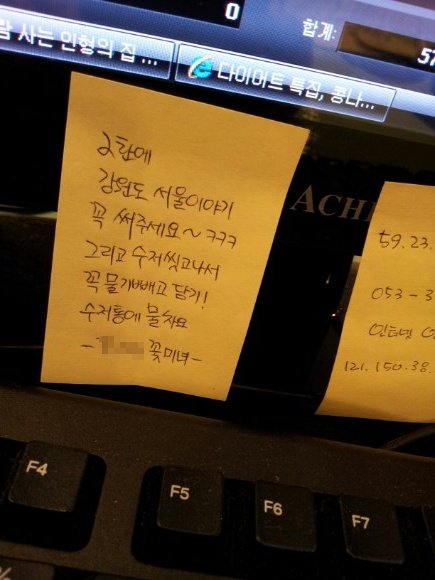 0
합계:
57
람 사는 인형의 집 ...
다이어트 특집, 콩나...
2화에
강원도 서울이야기
꼭 써주세요~ ㅋㅋㅋ
그리고 수저씻고나서
꼭 물기빼고 담기!
수저통에 물차요
- 꽃미녀-
ACHI
59.23.
053-3
인터넷
121.150.38.
F4
F5
F6
F7
%